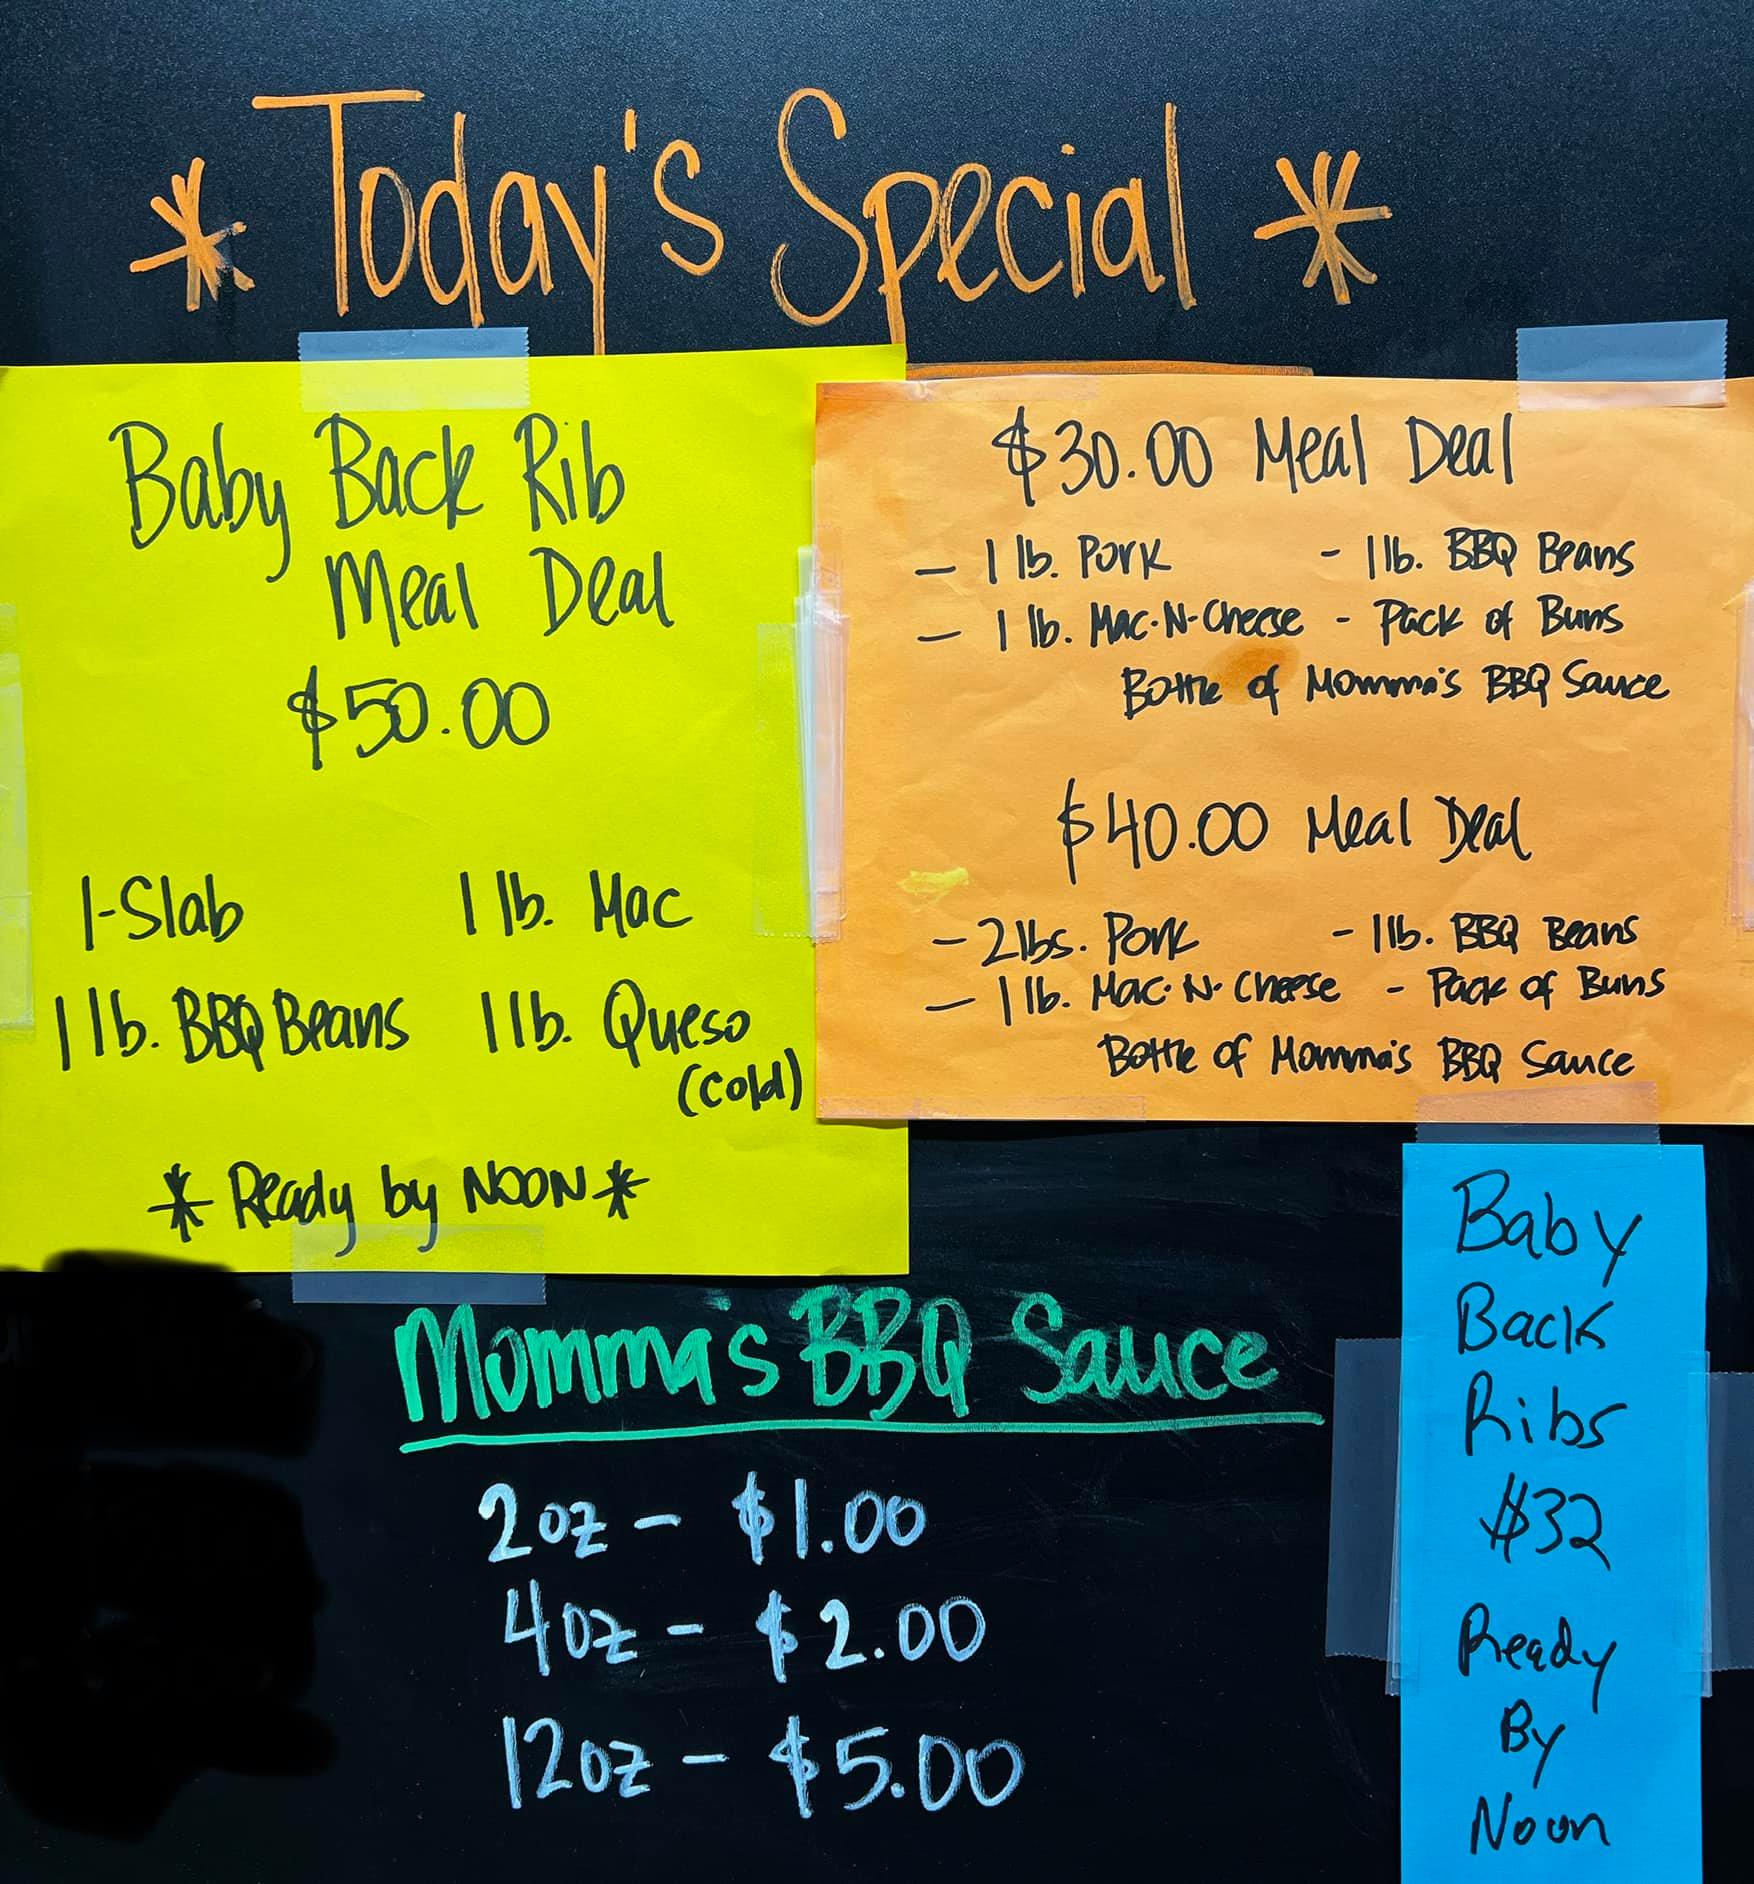 * Today's Special *
Baby Back Rib
Meal Deal
$50.00
1-Slab 1 lb. Mac
1 lb. BBQ Beans 1 lb. Queso
(cold)
* Ready by NOON *
$30.00 Meal Deal
- 1 lb. Pork - 1 lb. BBQ Beans
- 1 lb. Mac-N-Cheese - Pack of Buns
Bottle of Momma's BBQ Sauce
$40.00 Meal Deal
- 2 lbs. Pork - 1 lb. BBQ Beans
- 1 lb. Mac-N-Cheese - Pack of Buns
Bottle of Momma's BBQ Sauce
Momma's BBQ Sauce
2oz - $1.00
4oz - $2.00
12oz - $5.00
Baby
Back
Ribs
$32
Ready
By
Noon